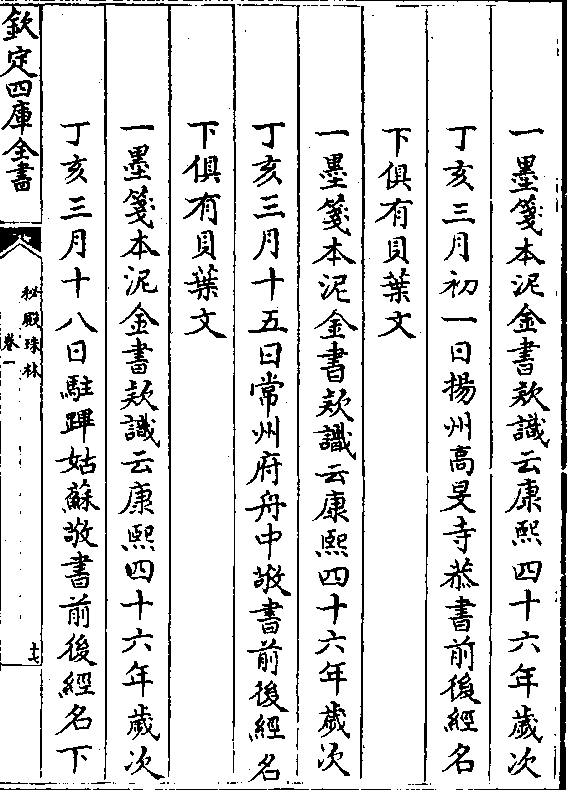 一墨箋本泥金書欵識云康熙四十六年歲次
丁亥三月初一日揚州高旻寺恭書前後經名
下俱有貝葉文
一墨箋本泥金書欵識云康熙四十六年歲次
丁亥三月十五日常州府舟中敬書前後經名
下俱有貝葉文
一墨箋本泥金書欵識云康熙四十六年歲次
丁亥三月十八日駐蹕姑蘇敬書前後經名下
欽定四庫全書
秘殿珠林
卷一
十七